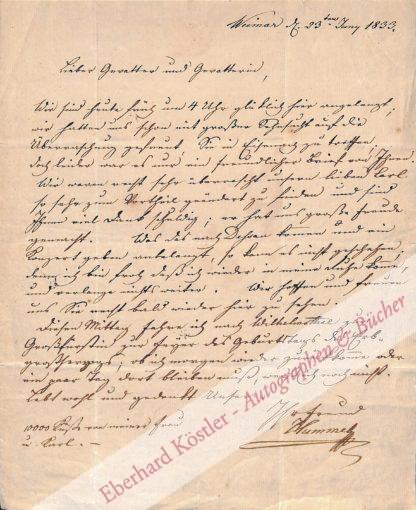 Weimar d. 23ten Juny 1833.
Lieber Gevatter und Gevatterin,
Wir sind heute früh um 4 Uhr glücklich hier angelangt,
wir hatten uns schon mit großer Sehnsucht auf die
Überraschung gefreut, Sie in Eisenach zu treffen,
doch leider war es nur ein freundlicher Brief von Ihnen.
Wir waren recht sehr überrascht unsern lieben Carl
so sehr zum Vortheil geändert zu finden und sind
Ihnen viel Dank schuldig; er hat uns große Freude
gemacht. Was das nach kommen und ein
Konzert geben anbelangt, so kann es nicht geschehen,
denn ich bin froh daß ich wieder in meine Ruhe komme,
und verlange nichts weiter. Wir hoffen und freuen
uns Sie recht bald wieder hier zu sehen.
Diesen Mittag fahre ich nach Wilhelmsthal zur
Großfürstin zur Feyer des Geburtstags des Erb-
großherzogs; ob ich morgen wieder zurück komme oder
ein paar Tag dort bleiben muß, weiß ich noch nicht.
Lebt wohl und gedenkt Unser
Ihr Freund
Hummel
10000 Küsse von meiner Frau
u. Karl. —
Eberhard Köstler - Autographen & Bücher